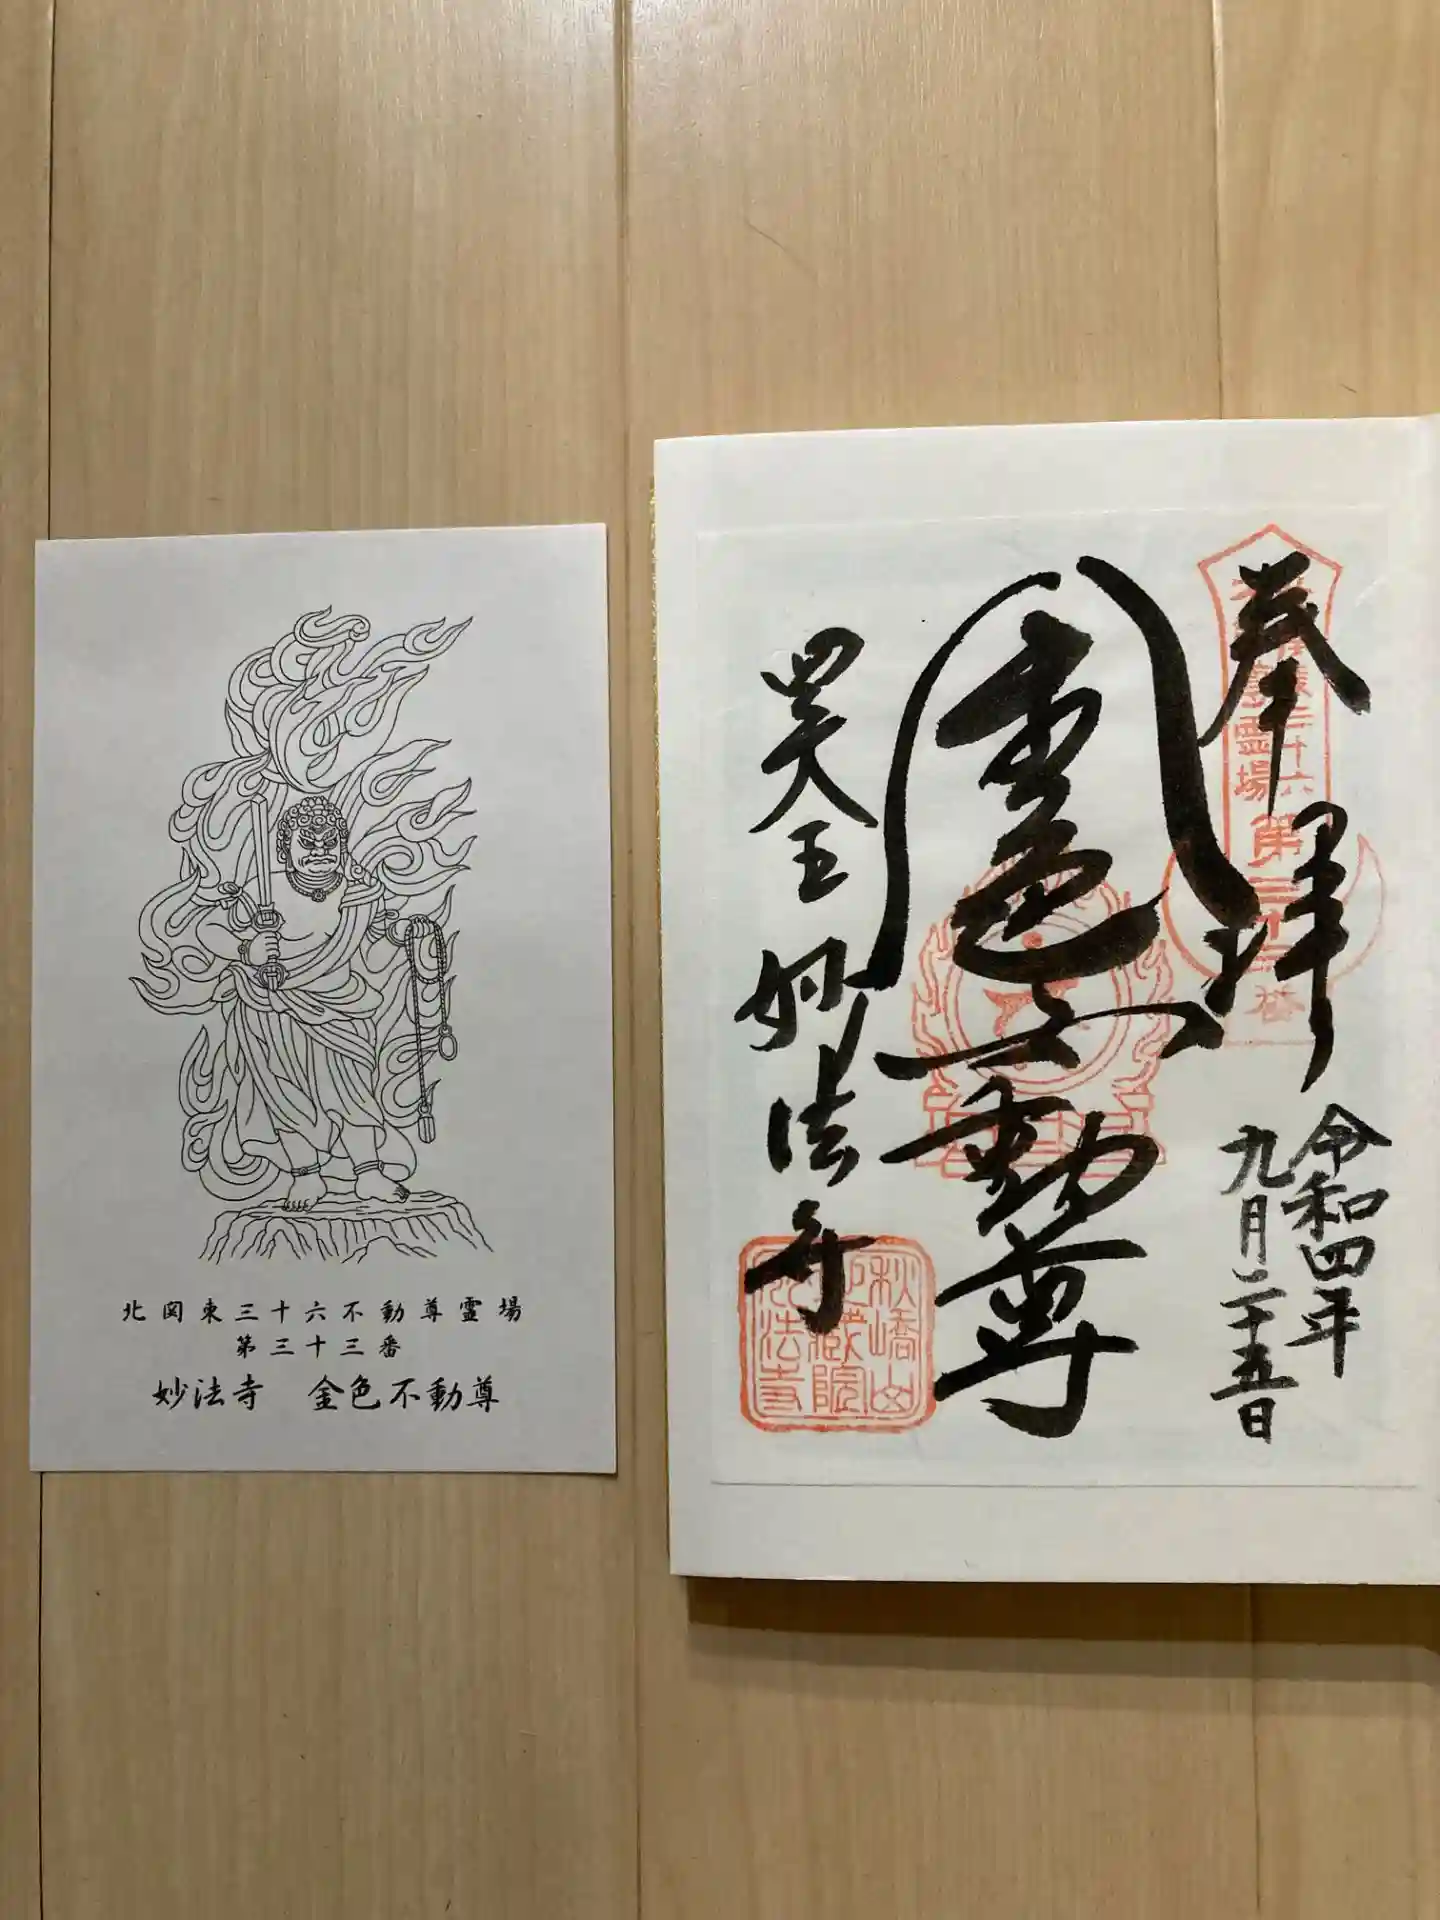 北関東三十六不動尊霊場
第三十三番
妙法寺　金色不動尊
奉拝
令和四年
九月二十五日
金色不動尊
妙法寺
霊場
第三十三番
秋嶠山
蔵院
妙法寺